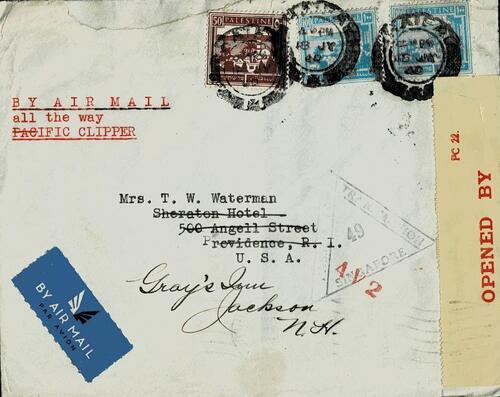 50 PALESTINE
PALESTINE 100
PALESTINE 100
BY AIR MAIL
all the way
PACIFIC CLIPPER
PC 22.
OPENED BY
Mrs. T. W. Waterman
Sheraton Hotel
500 Angell Street
Providence, R. I.
U. S. A.
Gray's Inn
Jackson
N.H.
49
SINGAPORE
A/2
BY AIR MAIL
PAR AVION